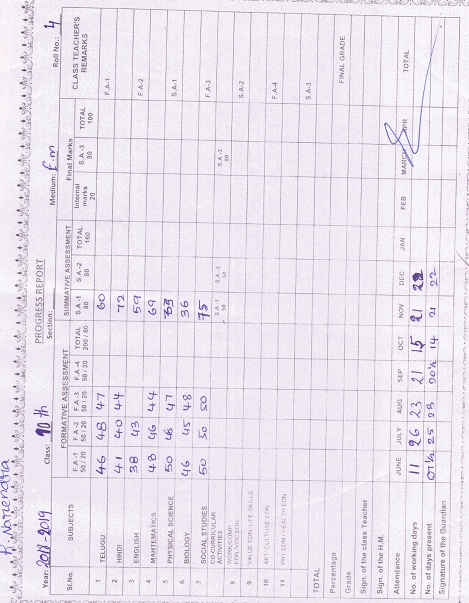 K. Narendra
PROGRESS REPORT
Year: 2018-2019 Class: 10th Section: Medium: E.m Roll No.: 4
Sl.No. SUBJECTS FORMATIVE ASSESSMENT SUMMATIVE ASSESSMENT Final Marks CLASS TEACHER'S REMARKS
F.A -1 50 / 20 F.A -2 50 / 20 F.A -3 50 / 20 F.A -4 50 / 20 TOTAL 200 / 80 S.A -1 80 S.A -2 80 TOTAL 160 Internal marks 20 S.A -3 80 TOTAL 100
1 TELUGU 46 48 47 60 F.A -1
2 HINDI 41 40 44 72
3 ENGLISH 38 43 59 F.A -2
4 MAHTEMATICS 43 46 44 69
5 PHYSICAL SCIENCE 50 46 47 S.A -1
6 BIOLOGY 46 45 48 36
7 SOCIAL STUDIES 50 50 50 75 F.A -3
CO-CURRICULAR ACTIVITIES S.A -1 50 S.A -2 50 S.A -3 50
8 WORK/COMP. EDN/VOC EDN S.A -2
9 VALUE EDN. LIFE SKILLS
10 ART/CULTURE EDN F.A -4
11 PHY.EDN / HEALTH EDN
TOTAL S.A -3
Percentage
Grade FINAL GRADE
Sign. of the class Teacher
Sign. of the H.M.
Attendance JUNE JULY AUG SEP OCT NOV DEC JAN FEB MARCH APR TOTAL
No. of working days 11 26 23 21 15 21
No. of days present 07½ 25 23 20½ 14 21 22
Signature of the Guardian